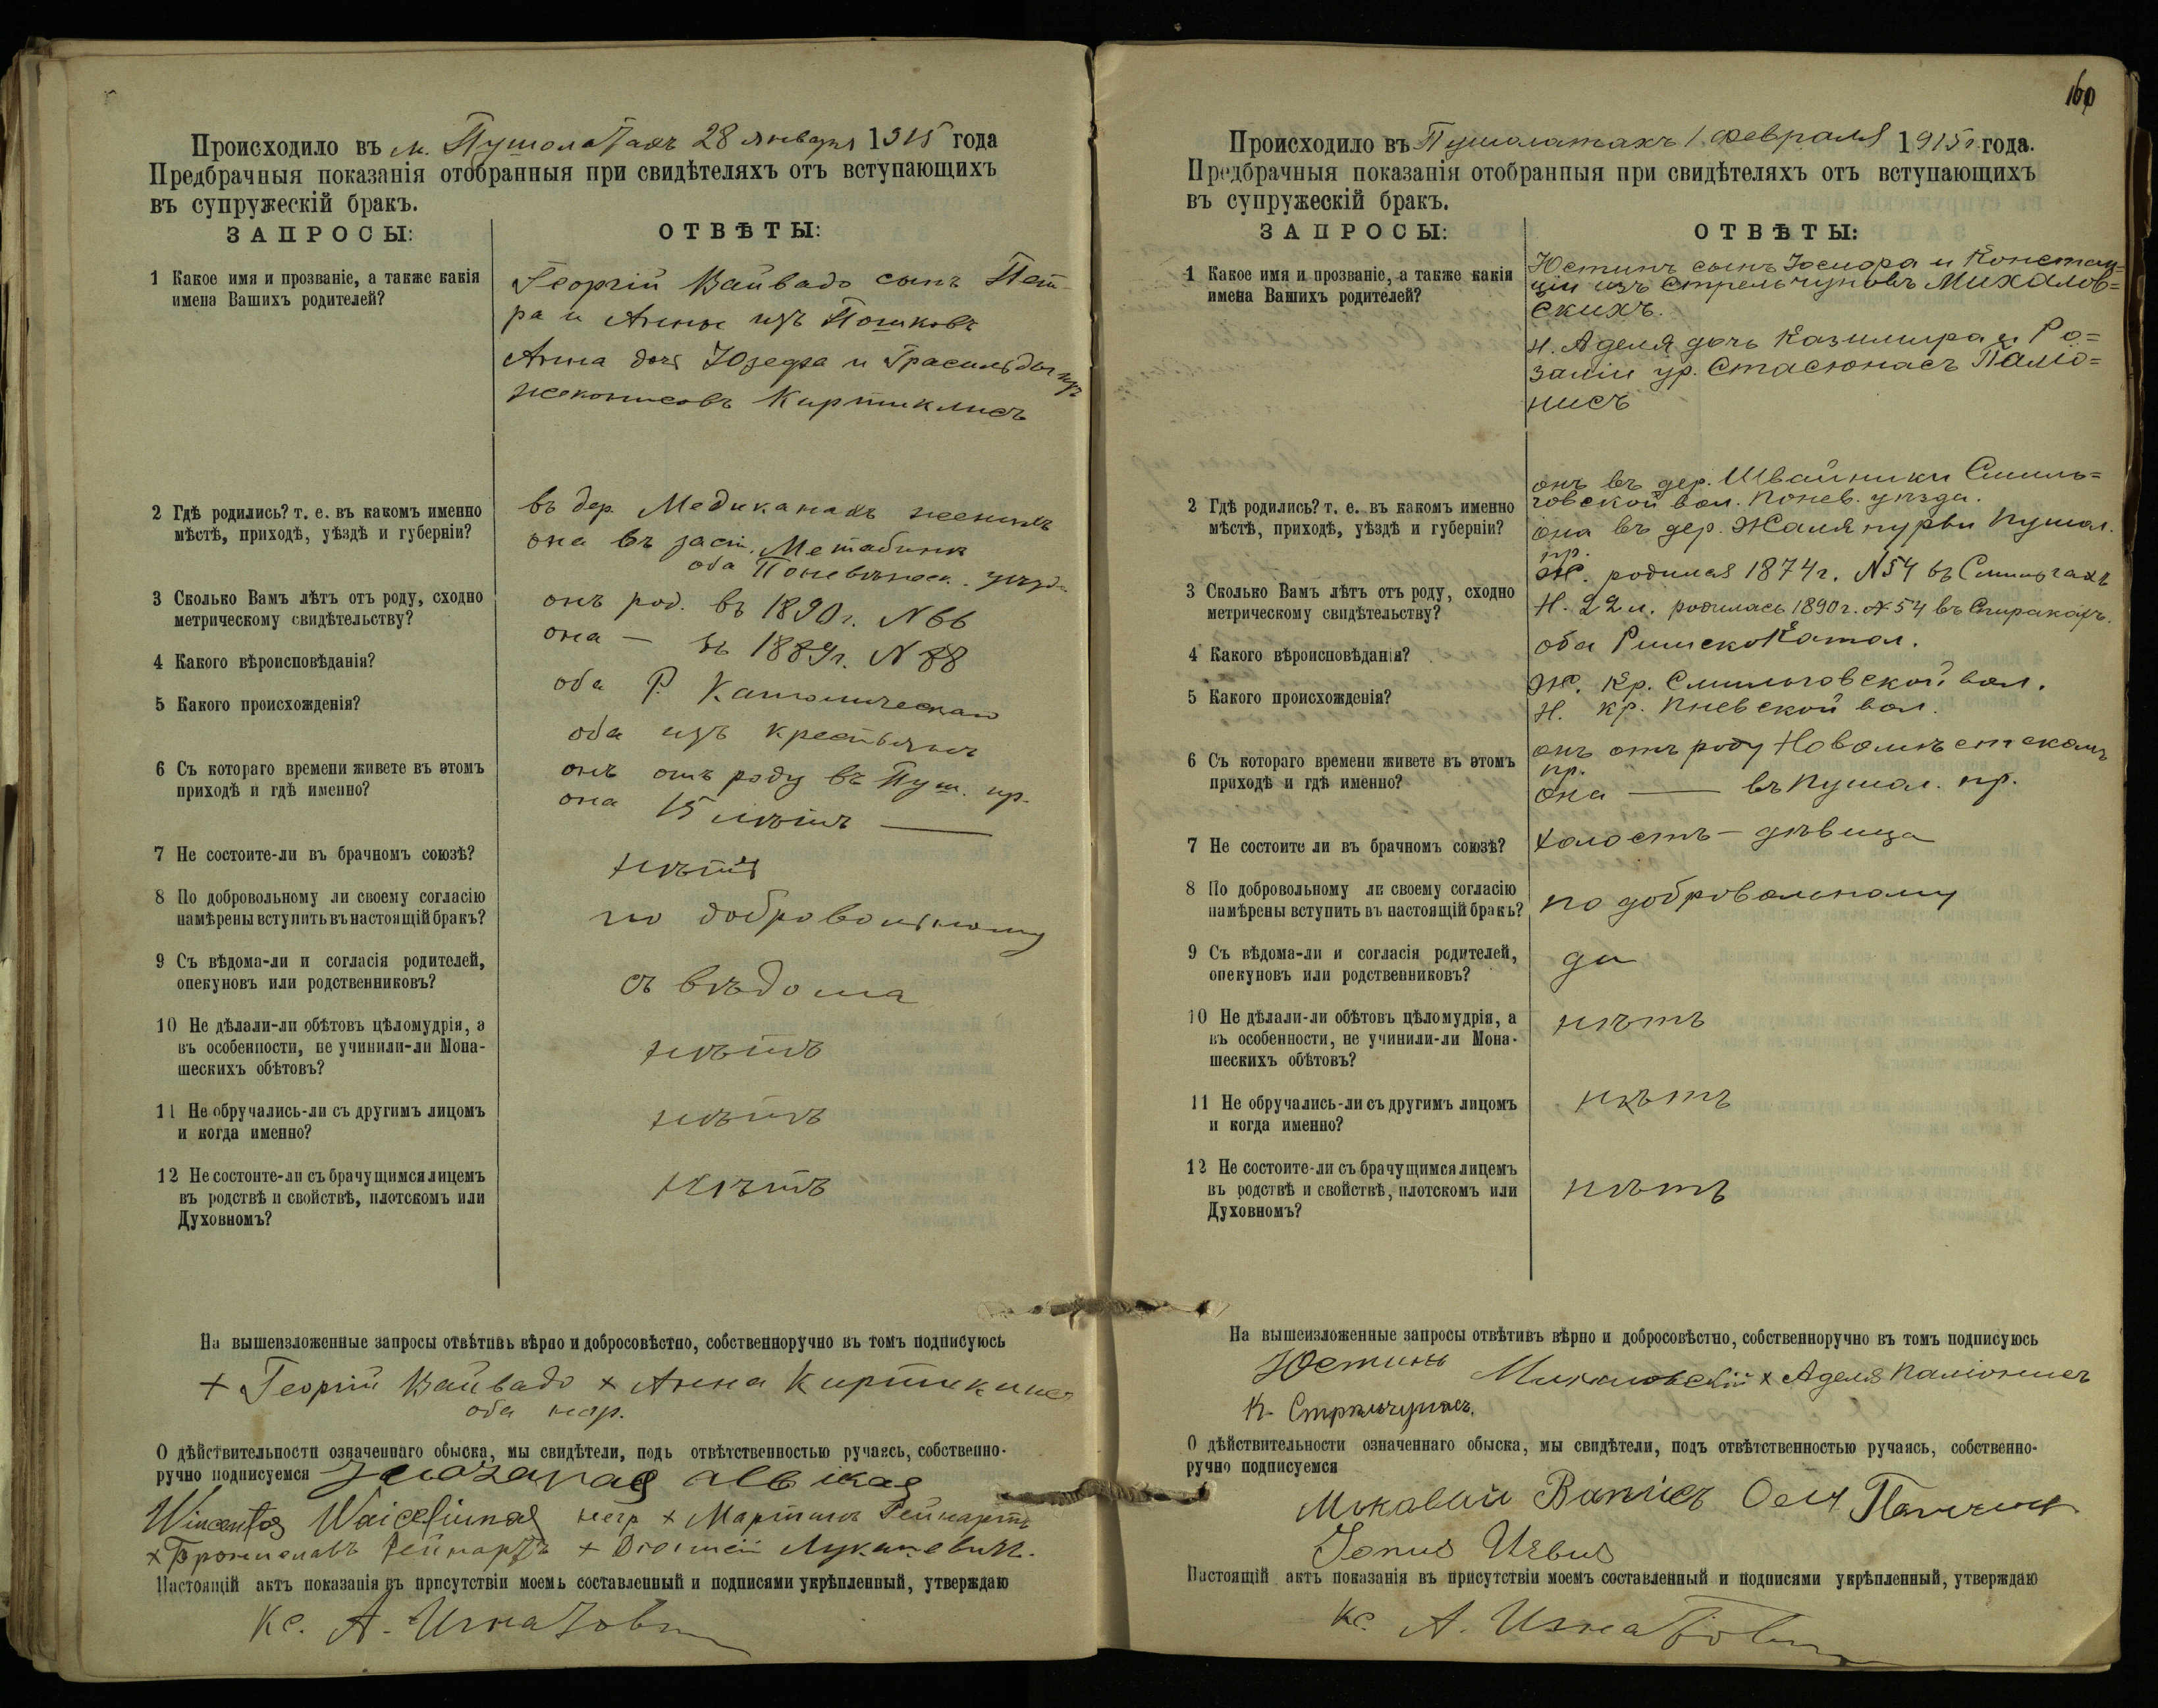 Происходило въ м. Пушолатахъ 28 января 1915 года
Предбрачныя показанія отобранныя при свидѣтеляхъ отъ вступающихъ
въ супружескій бракъ.
ЗАПРОСЫ:
ОТВѢТЫ:
1 Какое имя и прозваніе, а также какія
имена Вашихъ родителей?
Георгій Вайвадо сынъ Пет-
ра и Анны изъ Пошковъ
Анна дочь Юзефа и Грасильды изъ
Киртиклисъ
2 Гдѣ родились? т. е. въ какомъ именно
мѣстѣ, приходѣ, уѣздѣ и губерніи?
въ дер. Медиканахъ женихъ
она въ заст.
оба Поневѣжск. уѣзда
3 Сколько Вамъ лѣтъ отъ роду, сходно
метрическому свидѣтельству?
онъ род. въ 1890 г. N 66
она — въ 1889 г. N 88
4 Какого вѣроисповѣданія?
оба Р. Католическаго
5 Какого происхожденія?
оба изъ крестьянъ
6 Съ котораго времени живете въ этомъ
приходѣ и гдѣ именно?
онъ отъ роду въ Пуш. пр.
она 15 лѣтъ —
7 Не состоите-ли въ брачномъ союзѣ?
нѣтъ
8 По добровольному ли своему согласію
намѣрены вступить въ настоящій бракъ?
по добровольному
9 Съ вѣдома-ли и согласія родителей,
опекуновъ или родственниковъ?
съ вѣдома
10 Не дѣлали-ли обѣтовъ цѣломудрія, а
въ особенности, не учинили-ли Мона-
шескихъ обѣтовъ?
нѣтъ
11 Не обручались-ли съ другимъ лицомъ
и когда именно?
нѣтъ
12 Не состоите-ли съ брачущимся лицемъ
въ родствѣ и свойствѣ, плотскомъ или
Духовномъ?
нѣтъ
На вышеизложенные запросы отвѣтивъ вѣрно и добросовѣстно, собственноручно въ томъ подписуюсь
+ Георгій Вайвадо + Анна Киртиклисъ
оба негр.
О дѣйствительности означеннаго обыска, мы свидѣтели, подъ отвѣтственностью ручаясь, собственно-
ручно подписуемся
Wincentas Waiceliunas негр + Мартинъ Гейнартъ
+ Брониславъ Гейнартъ + Діонисій Лукашевичъ.
Настоящій актъ показанія въ присутствіи моемъ составленный и подписями укрѣпленный, утверждаю
Кс. А. Игнатовичъ
160
Происходило въ Пушолатахъ 1 февраля 1915 г. года.
Предбрачныя показанія отобранныя при свидѣтеляхъ отъ вступающихъ
въ супружескій бракъ.
ЗАПРОСЫ:
ОТВѢТЫ:
1 Какое имя и прозваніе, а также какія
имена Вашихъ родителей?
Юстинъ сынъ Іосифа и Констан=
ціи изъ Стрельчуновъ Михалов=
скихъ.
Н. Аделя дочь Казимира и Ро=
заліи ур. Стасюнасъ Паліо=
нисъ
2 Гдѣ родились? т. е. въ какомъ именно
мѣстѣ, приходѣ, уѣздѣ и губерніи?
онъ въ дер. Швайники Смиль=
говской вол. Понев. уѣзда.
она въ дер. Пушол.
пр.
3 Сколько Вамъ лѣтъ отъ роду, сходно
метрическому свидѣтельству?
Ж. родился 1874 г. N 54 въ Смильгахъ
Н. 22 л. родилась 1890 г. N 54 въ
4 Какого вѣроисповѣданія?
оба РимскоКатол.
5 Какого происхожденія?
Ж. Кр. Смильговской вол.
Н. кр. Пневской вол.
6 Съ котораго времени живете въ этомъ
приходѣ и гдѣ именно?
онъ отъ роду Новомѣстскомъ
пр.
она — въ Пушол. пр.
7 Не состоите ли въ брачномъ союзѣ?
холостъ – дѣвица
8 По добровольному ли своему согласію
намѣрены вступить въ настоящій бракъ?
по добровольному
9 Съ вѣдома-ли и согласія родителей,
опекуновъ или родственниковъ?
да
10 Не дѣлали-ли обѣтовъ цѣломудрія, а
въ особенности, не учинили-ли Мона-
шескихъ обѣтовъ?
нѣтъ
11 Не обручались-ли съ другимъ лицомъ
и когда именно?
нѣтъ
12 Не состоите-ли съ брачущимся лицемъ
въ родствѣ и свойствѣ, плотскомъ или
Духовномъ?
нѣтъ
На вышеизложенные запросы отвѣтивъ вѣрно и добросовѣстно, собственноручно въ томъ подписуюсь
Юстинъ Михаловскій + Аделя Паліонисъ
К. Стрельчунасъ.
О дѣйствительности означеннаго обыска, мы свидѣтели, подъ отвѣтственностью ручаясь, собственно-
ручно подписуемся
Jonas Urbus
Настоящій актъ показанія въ присутствіи моемъ составленный и подписями укрѣпленный, утверждаю
Кс. А. Игнатовичъ